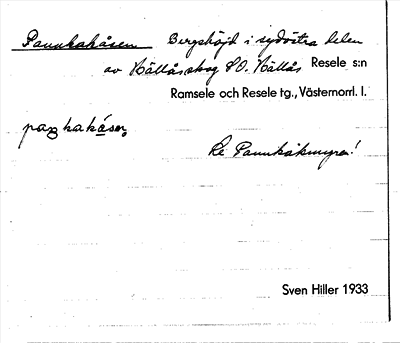 Pannkakåsen Bergshöjd i sydöstra delen
av Hällåsskog SO. Hällås Resele s:n
Ramsele och Resele tg., Västernorrl. l.
paŋkakåsen,
Se Pannkakmyren!
Sven Hiller 1933